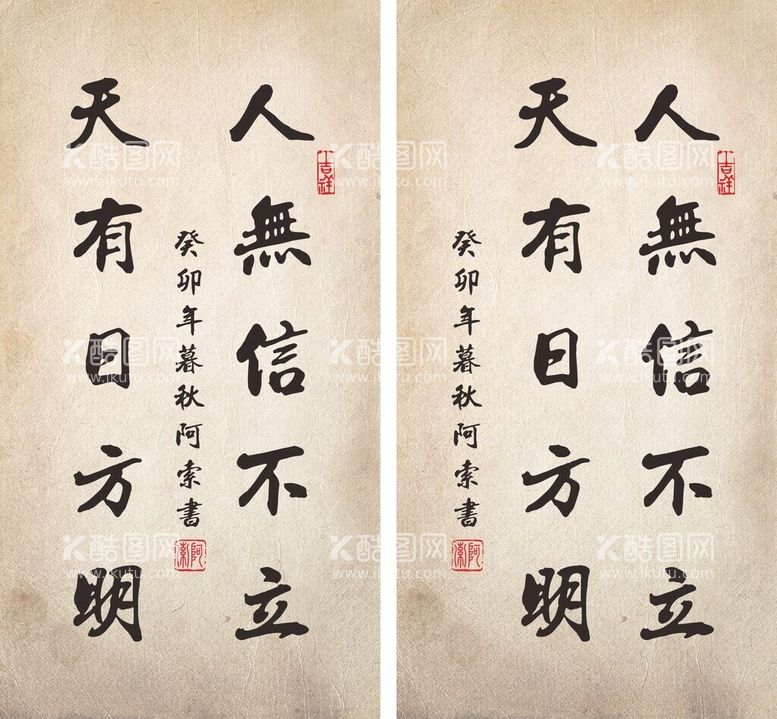 人無信不立
天有日方明
癸卯年暮秋阿索書
吉祥
阿索
人無信不立
天有日方明
癸卯年暮秋阿索書
吉祥
阿索
酷图网
www.ikutu.com